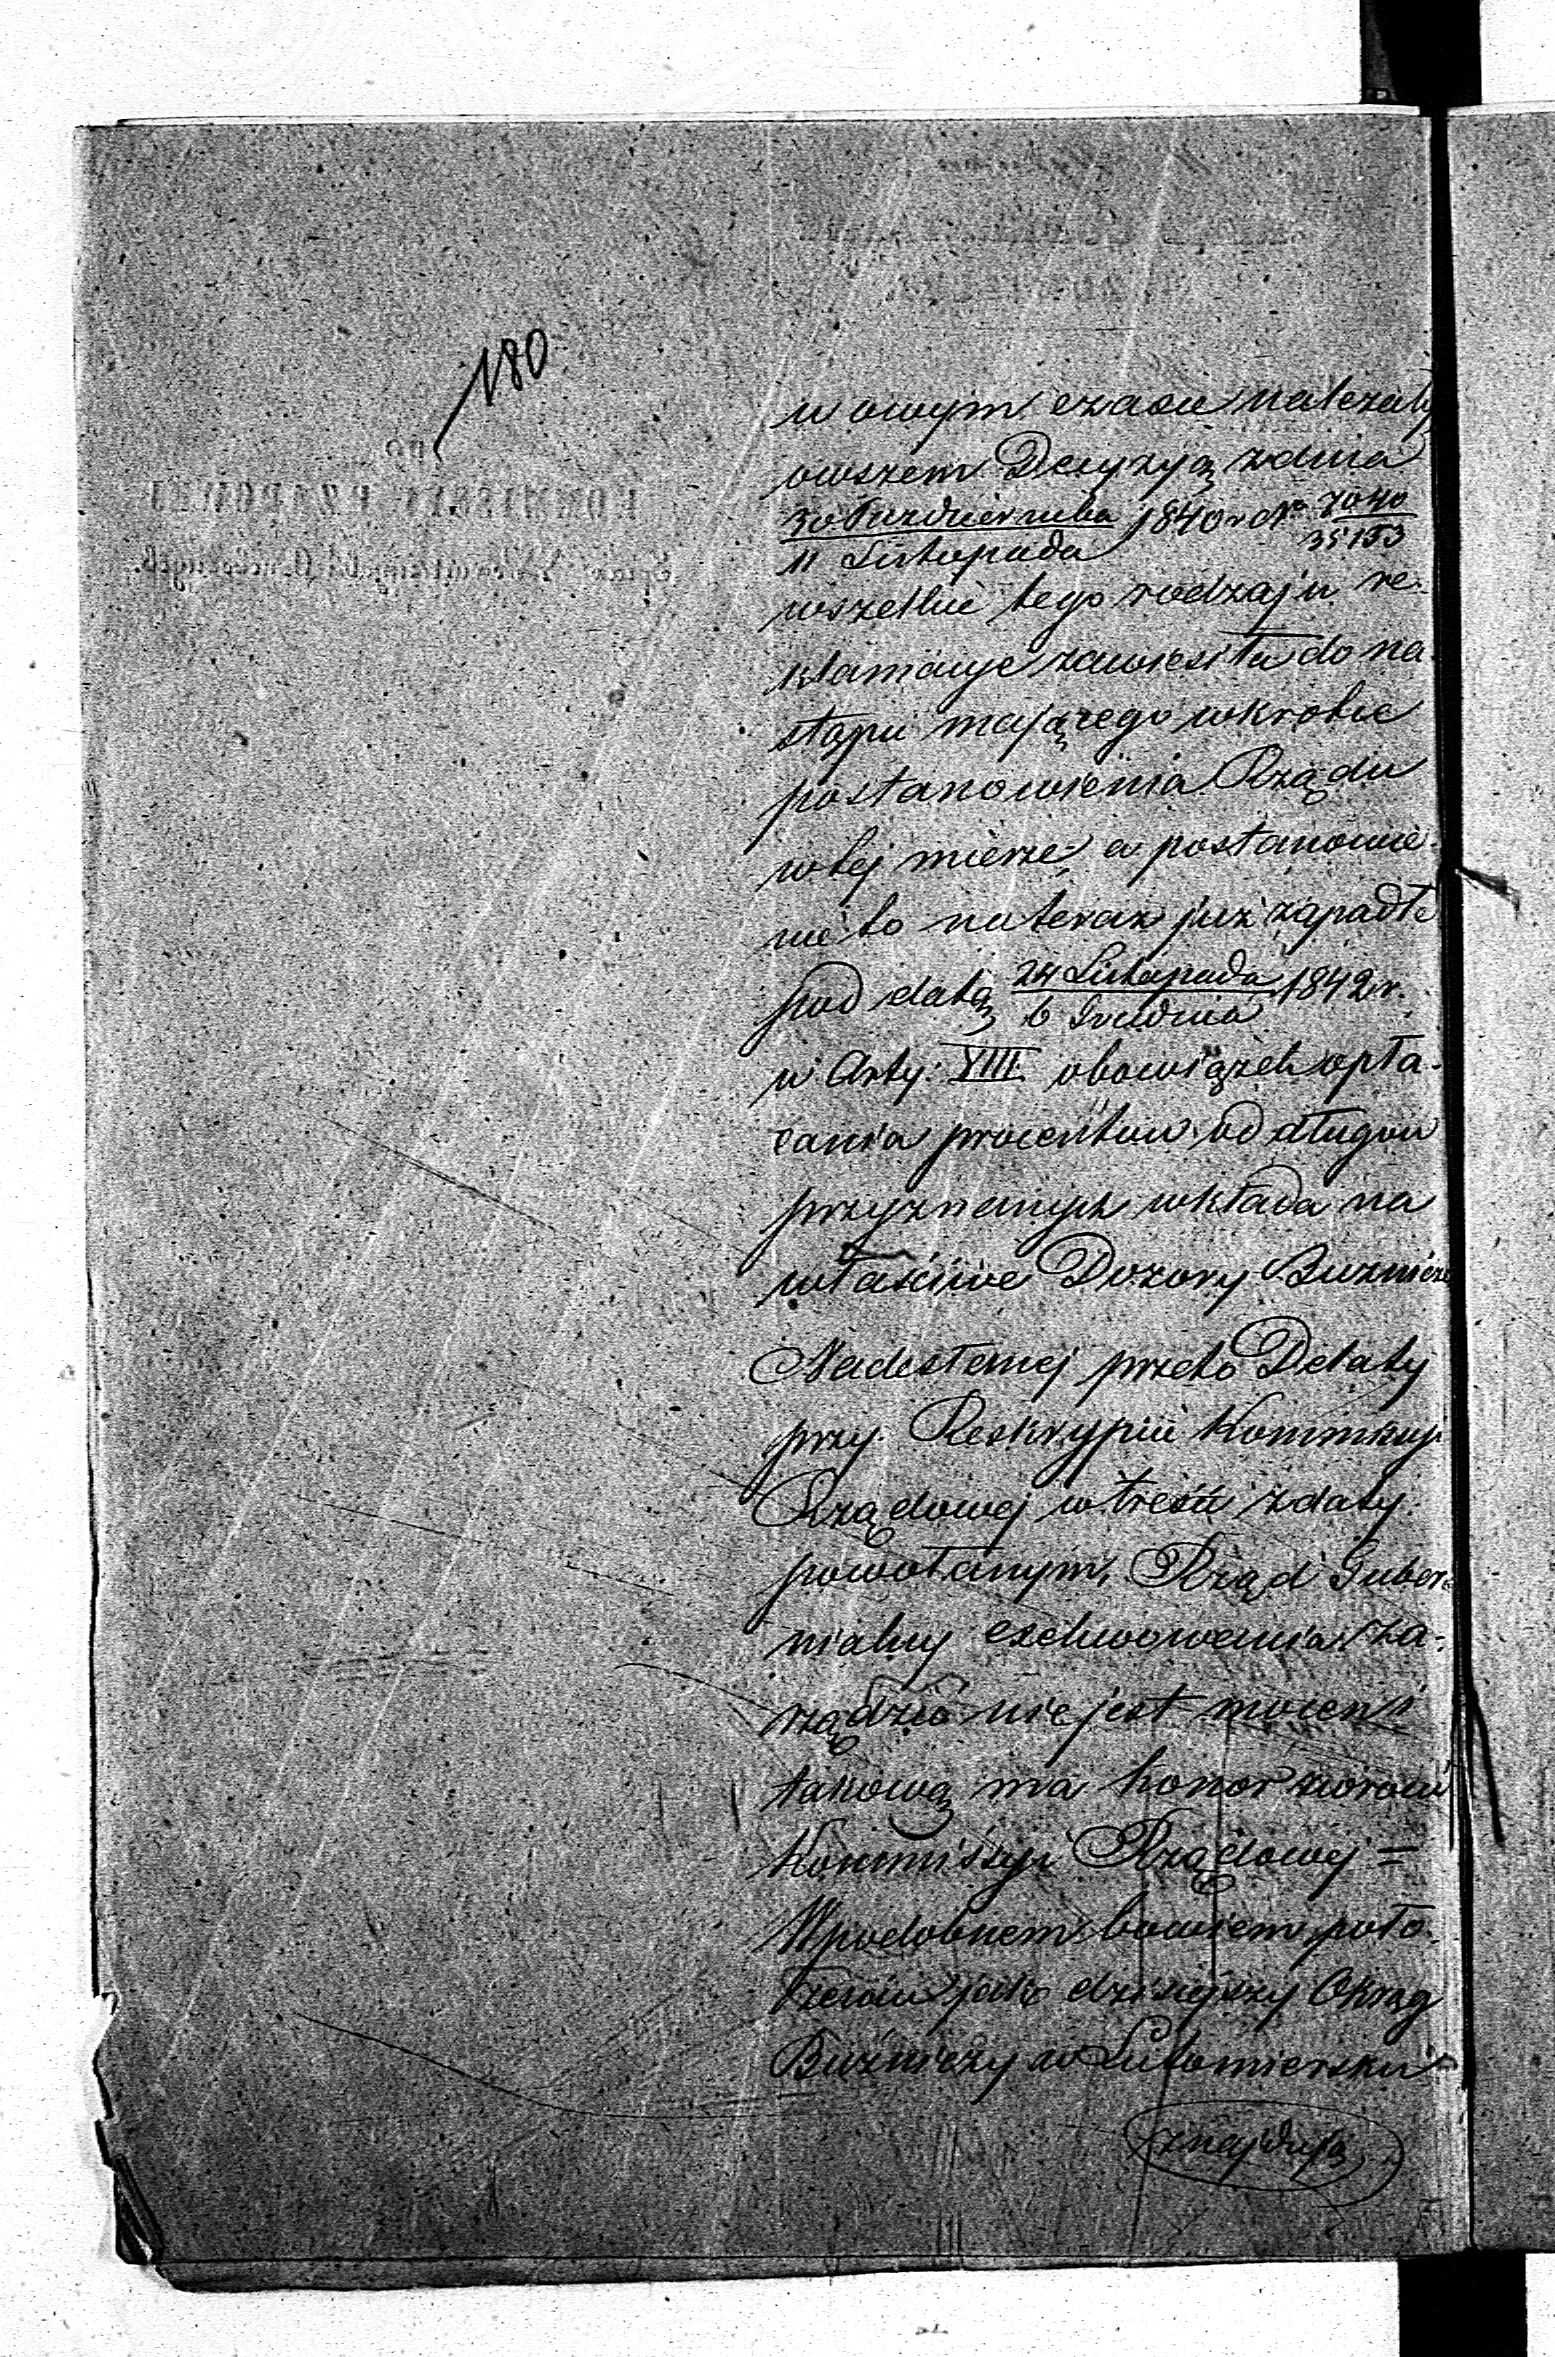 180
w owym czasie należały
owszem Decyzyą z dnia
30 Października / 11 Listopada 1840 r No 7040/35153
wszelkie tego rodzaju re-
klamacye zawiesiła do na
stąpić mającego wkrotce
postanowienia Rządu
w tej mierze, a postanowie-
nie to na teraz już zapadłe
pod datą 24 Listopada / 6 Grudnia 1842 r.
w Arty: VIII obowiązek opła-
cania procentow od długow
przyznanych wkłada na
właściwe Dozory Bużnicze
Nadesłanej przeto Delaty
przy Reskrypcie Kommissyi
Rządowej w treści z daty
powołanym, Rząd Guber-
nialny exekwowania za-
rządzić nie jest mocen i
takową ma honor zwrocić
Kommissyi Rządowej =
W podobnem bowiem poło-
żeniu jak dzisiejszy Okrąg
Bużniczy w Lutomiersku
znajdują